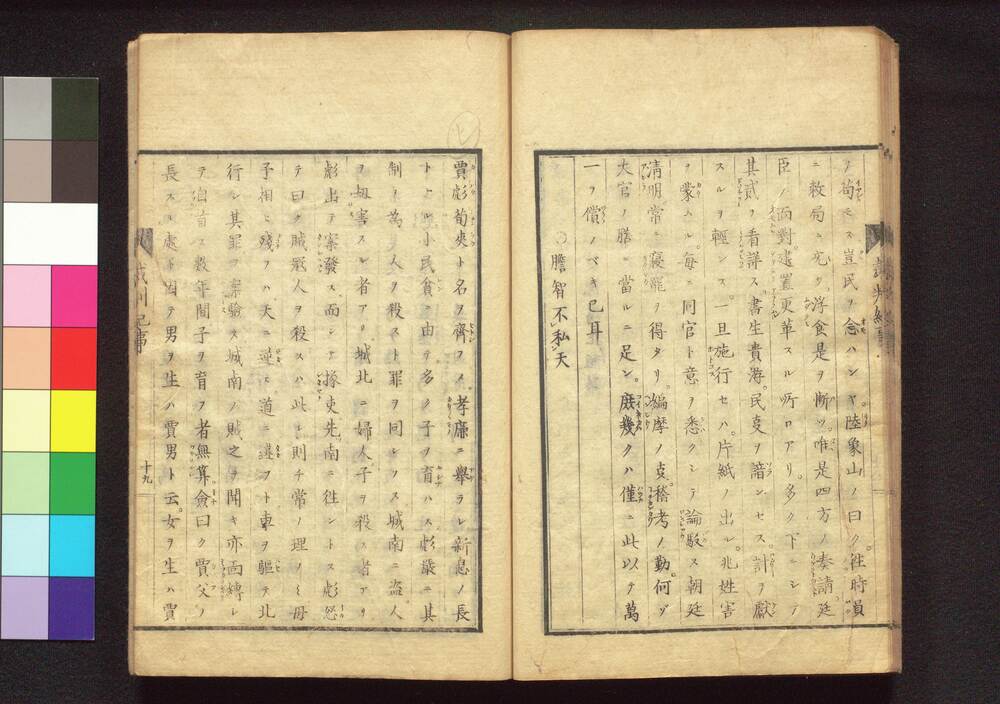 ノ苟モス豈民ヲ念ハンヤ陸象山ノ曰ク往時
ニ敕局ニ充ツ浮食是ヲ慚ツ唯是四方ノ奏請廷
臣ノ面對建置更革スル所ロアリ多クドニシノ
其貳ヲ看詳ス書生貴游民叓ヲ諳ンセス計ヲ獻
スルヲ輕ンス一旦施行セハ片紙ノ出ル兆姓害
ヲ蒙ムル毎ニ同官ト意ヲ悉クシテ論駁ス朝廷
清明常ニ寝罷ヲ得タリ編摩ノ叓稽考ノ勤何ゾ
大官ノ膳ニ當ルニ足ン庶幾クハ僅ニ此以テ萬
一ヲ償ノベキ已耳
○膽智不私天
賈彪荀爽ト名ヲ齊フノ孝廉ニ舉ラレ新息ノ長
トナル小民貧ニ由テ多ク子ヲ育ハス彪嚴ニ其
制ト萬人ヲ殺スト罪ヲ同シフス城南ニ盗人
ヲ劫害スル者アリ城北ニ婦人子ヲ殺ス者アリ
彪出テ案發ス而シテ掾吏先南ニ往ントス彪怒
テ曰ク賊冦人ヲ殺スハ此レ則チ常ノ理ノミ母
子相ヒ殘フハ天ニ逆ヒ道ニ違フト車ヲ驅テ北
行シ其罪ヲ案驗ス城南ノ賊之ヲ聞キ亦面縛シ
ヲ自首ス數年間子ヲ育フ者無算僉曰ク賈父ノ
長スル處ト因テ男ヲ生ハ賈男ト云女ヲ生ハ賈
十九